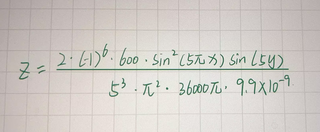 z = \frac{2 \cdot (-1)^6 \cdot 600 \cdot \sin^2(5πx) \sin(5y)}{5^3 \cdot π^2 \cdot 36000π \cdot 9.9 × 10^{-9}}